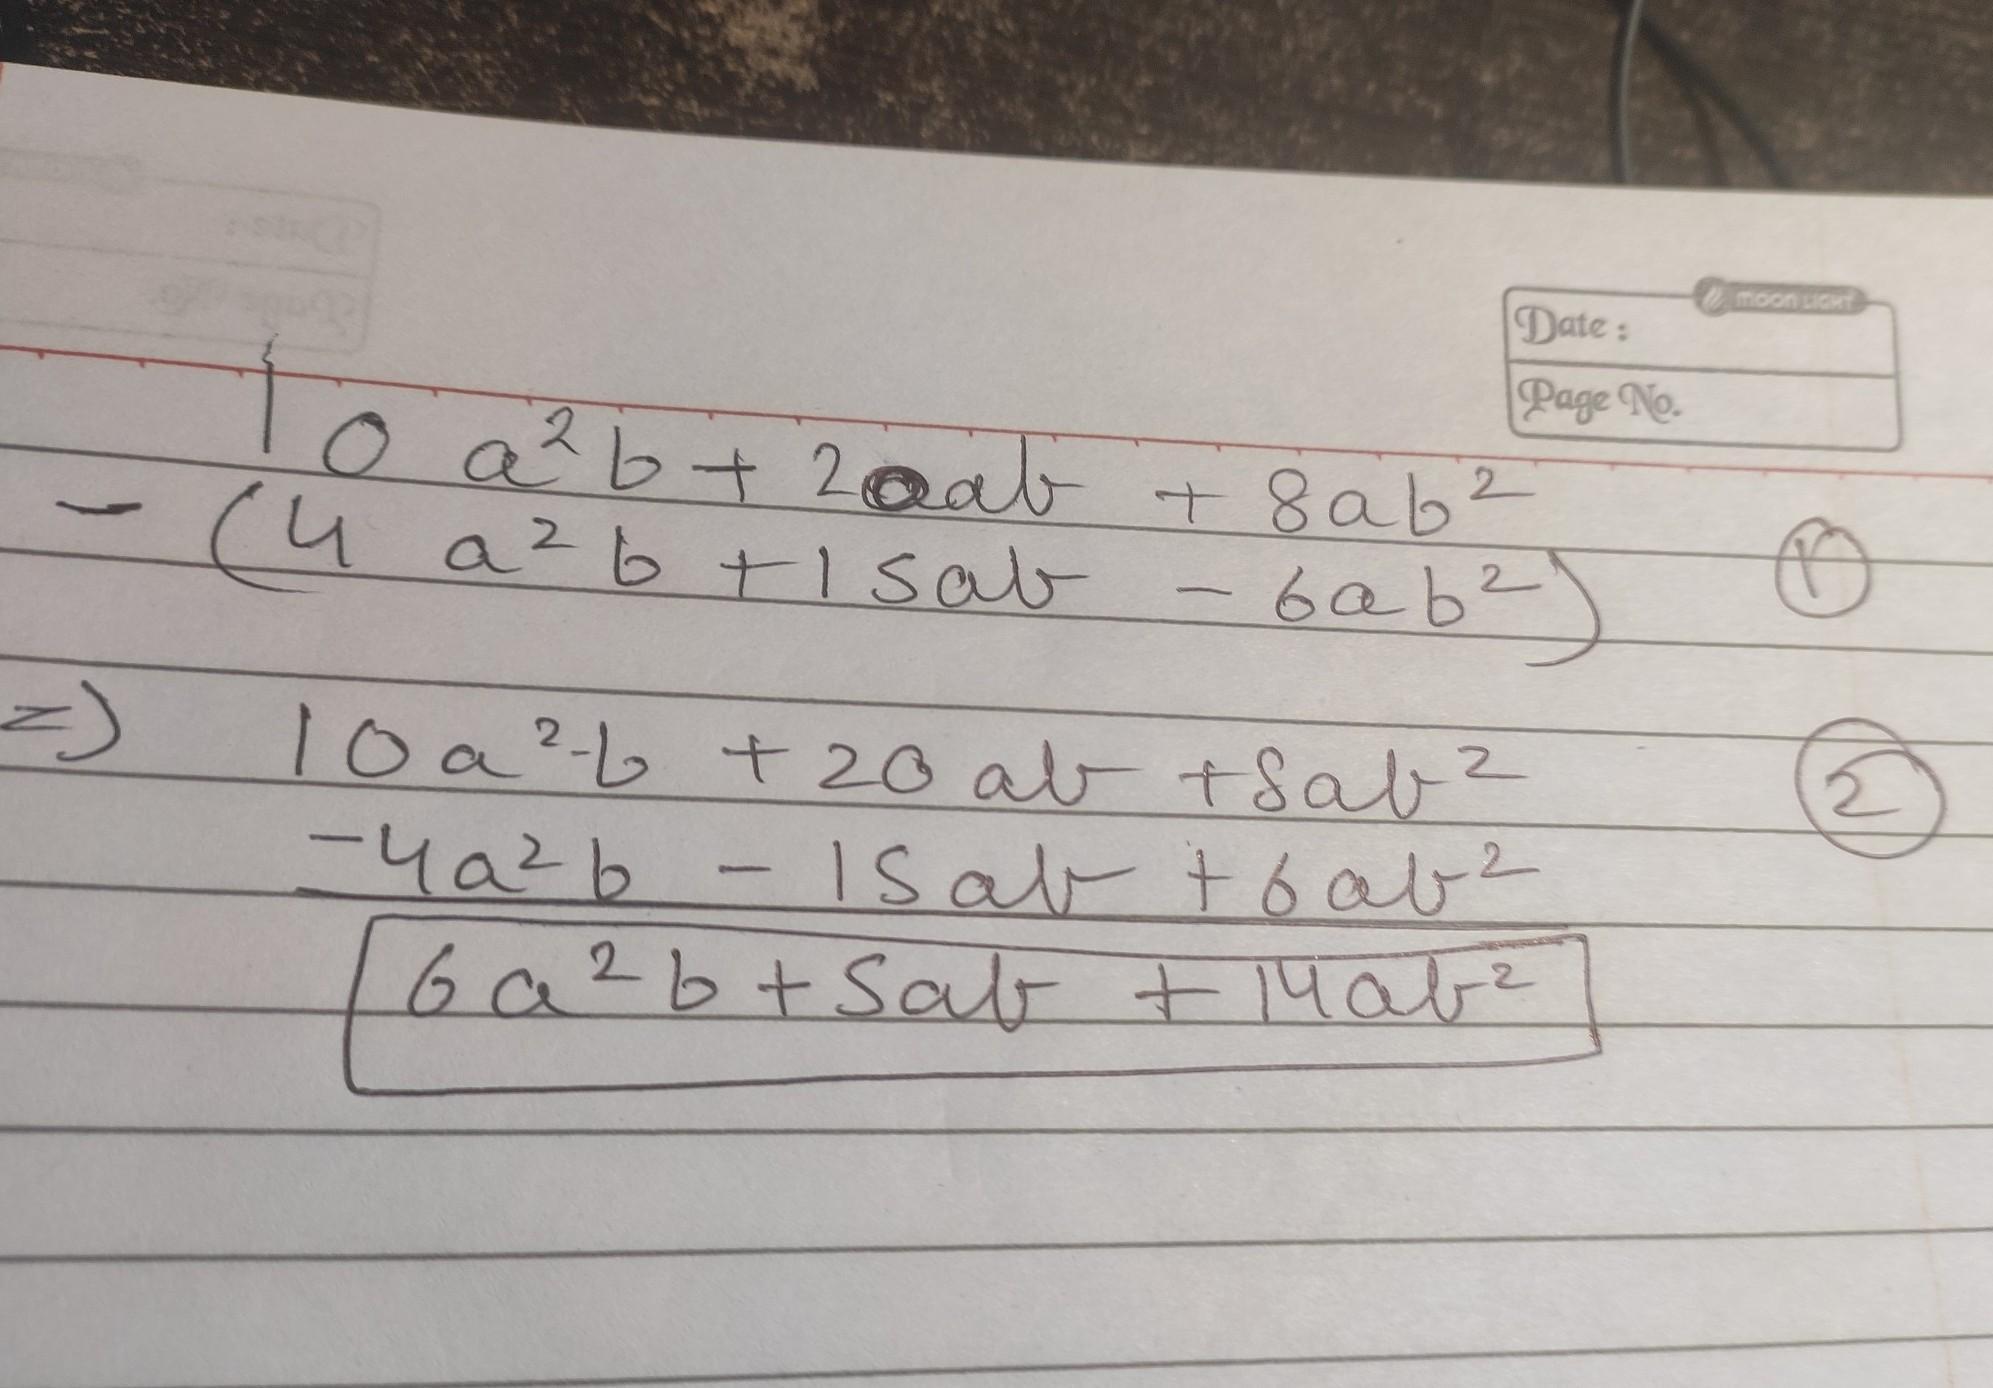 MOON LIGHT
Date :
Page No.
10 a²b + 20ab + 8ab²
- (4 a²b + 15ab - 6ab²) ①
=) 10a²b + 20ab + 8ab² ②
-4a²b - 15ab + 6ab²
6a²b + 5ab + 14ab²